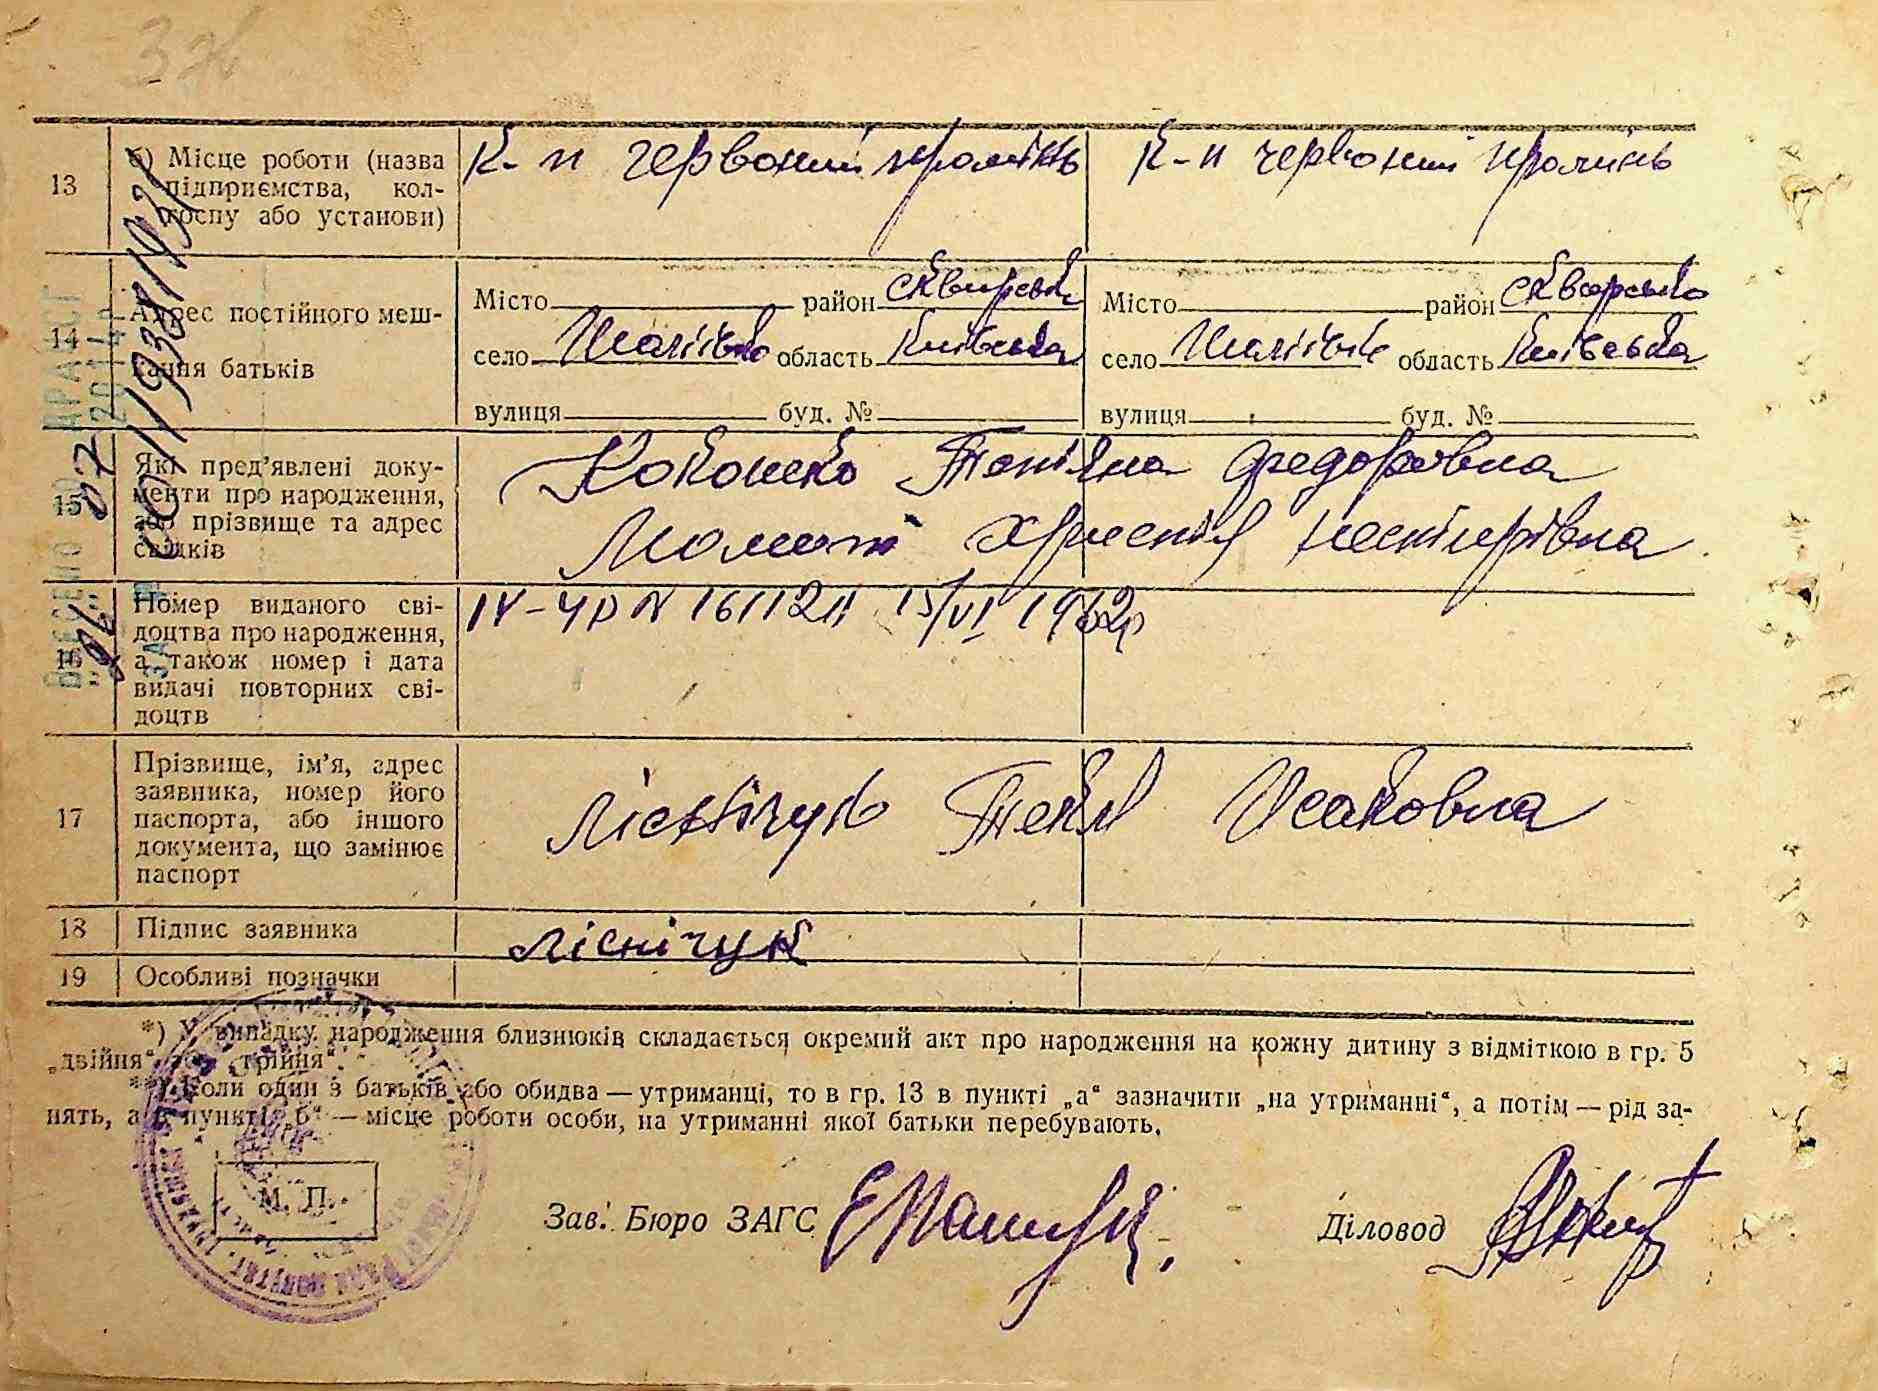 13
б) Місце роботи (назва
підприємства, кол-
госпу або установи)
К-п червоний промінь
К-п червоний промінь
14
Адрес постійного меш-
кання батьків
Місто район Сквирська
село область Київська
вулиця буд. №
Місто район Сквирська
село область Київська
вулиця буд. №
15
Які пред’явлені доку-
менти про народження,
або прізвище та адрес
свідків
Тетіяна Федоровна
16
Номер виданого сві-
доцтва про народження,
а також номер і дата
видачі повторних сві-
доцтв
15/VI 1962р
17
Прізвище, ім’я, адрес
заявника, номер його
паспорта, або іншого
документа, що замінює
паспорт
Ліснічук Текля Исаковна
18
Підпис заявника
Ліснічук
19
Особливі позначки
*) У випадку народження близнюків складається окремий акт про народження на кожну дитину з відміткою в гр. 5
„двійня“ або „трійня“.
**) Коли один з батьків або обидва — утриманці, то в гр. 13 в пункті „а“ зазначити „на утриманні“, а потім — рід за-
нять, а в пункті „б“ — місце роботи особи, на утриманні якої батьки перебувають.
М. П.
Зав. Бюро ЗАГС
Діловод